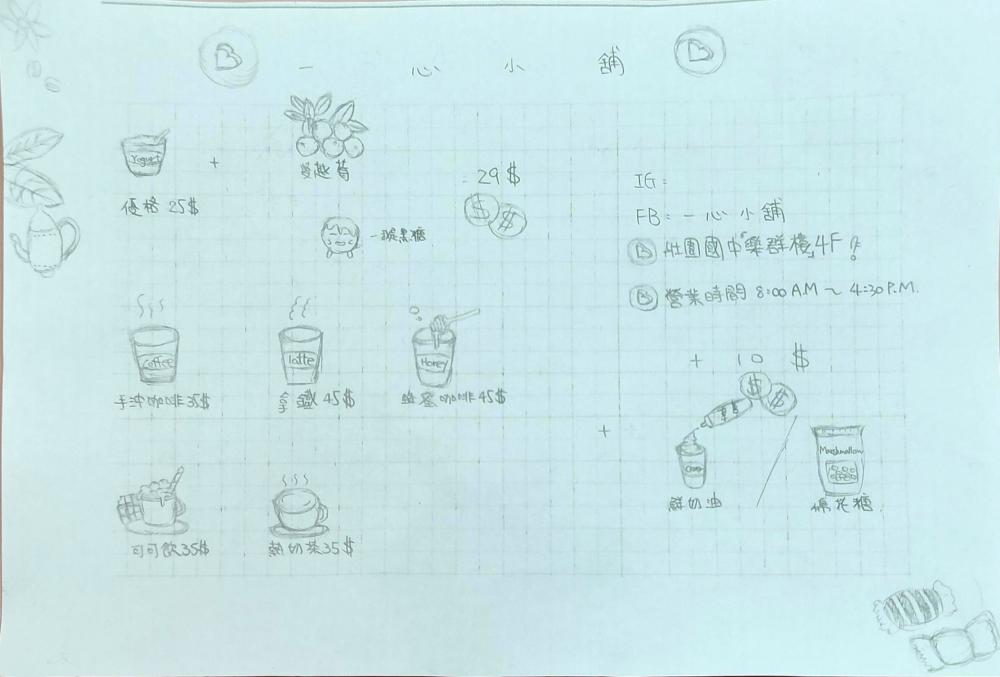 一心小舖
Yogurt
+
蔓越莓
29$
優格 25$
黑糖
IG:
FB:一心小舖
壯圍國中「樂群樓」4F!
營業時間 8:00 A.M ~ 4:30 P.M.
Coffee
latte
Honey
手沖咖啡35$
拿鐵 45$
蜂蜜咖啡45$
+ 10 $
+
Marshmallow
鮮奶油
棉花糖
可可飲35$
熱奶茶35$